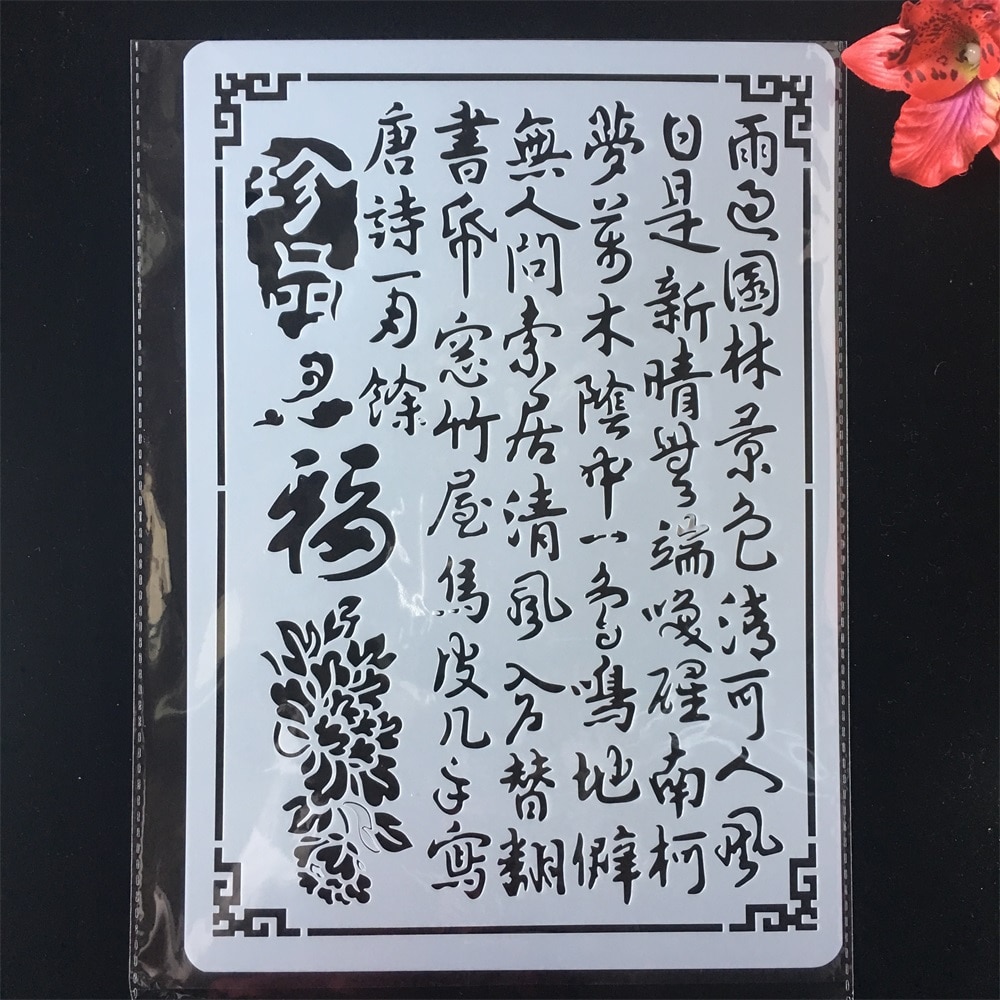 雨過園林景色清可人風
日是新晴無端喚醒南柯
夢萬木陰中一鳥鳴地僻
無人問索居清風入户替翻
書紙窓竹屋馬皮几手寫
唐詩一百餘
珍品
忍
福